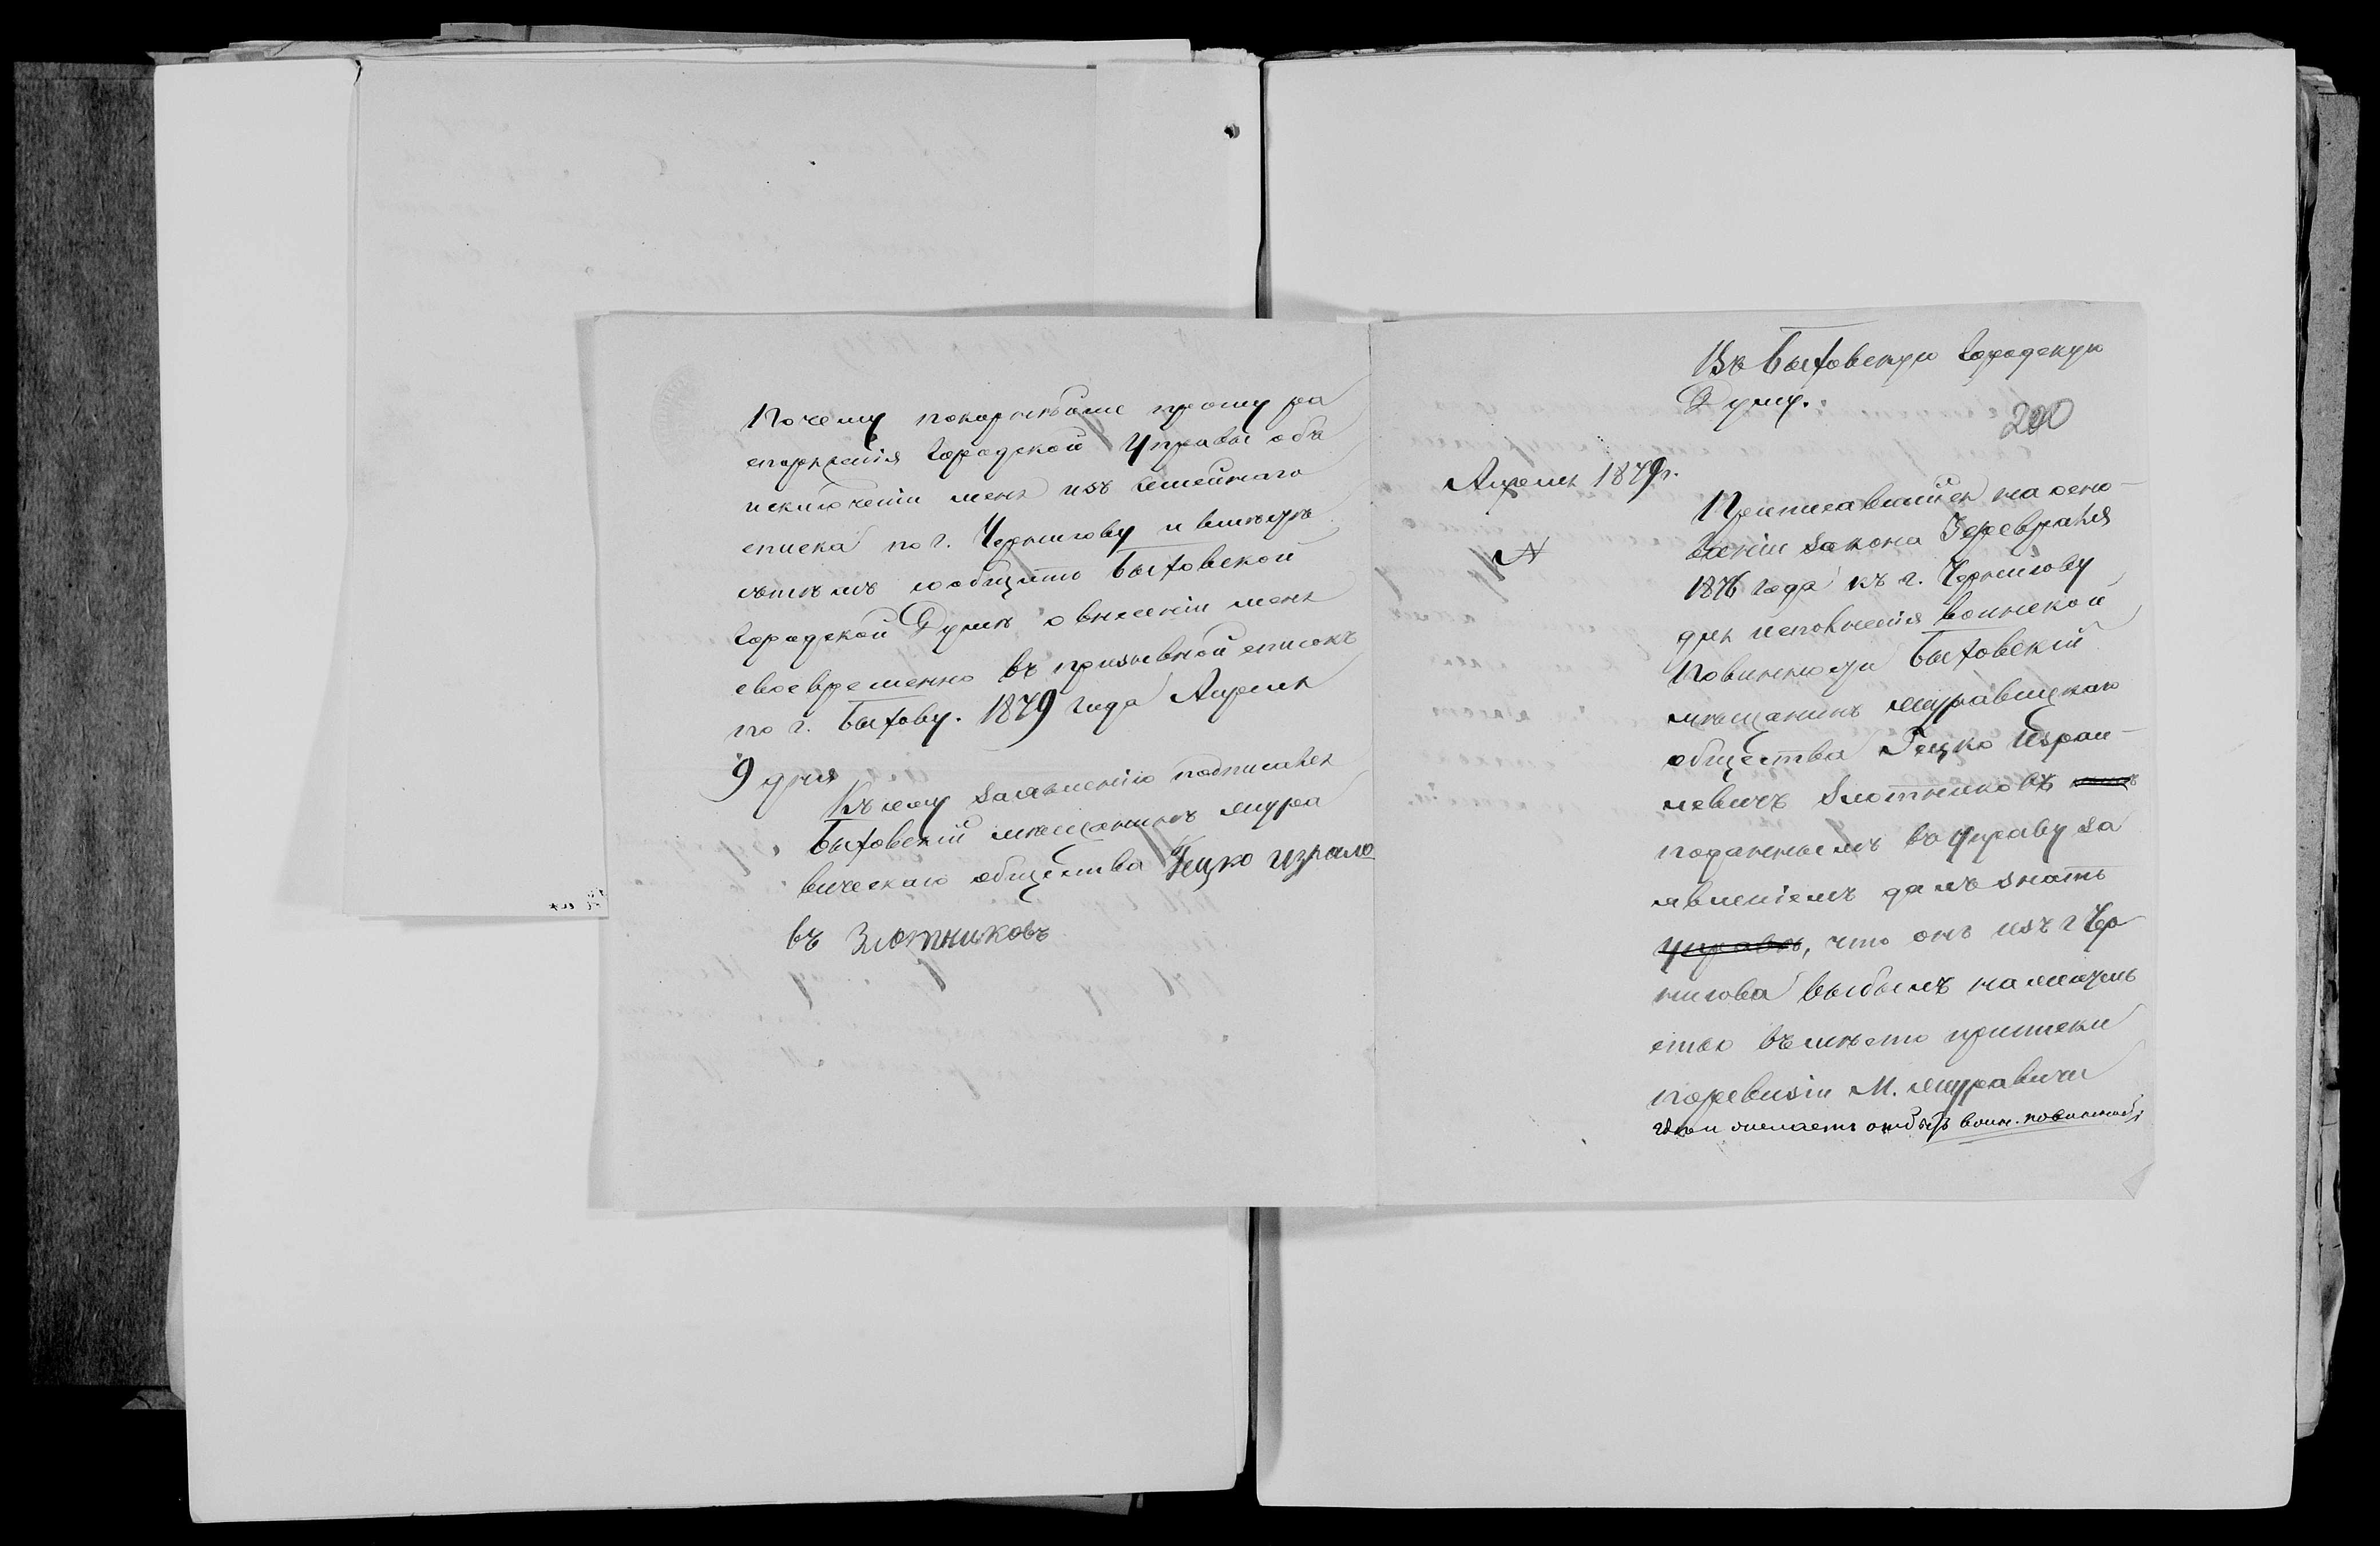 Почему покорнѣйше прошу ра
споряженія Городской Управы объ
исключеніи меня изъ семейнаго
списка по г. Чернигову и вмѣстѣ
съ тѣмъ сообщить Быховской
Городской Думѣ о внесеніи меня
своевременно въ призывной списокъ
по г. Быхову. 1879 года Апреля
9 дня
Къ сему заявленію подписался
Быховскій мѣщанинъ Мура
вическаго общества Гецко Израле
въ Злотниковъ
Въ Быховскую Городскую
Думу.
200
Апреля 1879 г.
№
Приписавшійся на осно-
ваніи закона 3 февраля
1876 года къ г. Чернигову
для исполненія воинской
повинности Быховскій
мѣщанинъ Муравицкаго
общества Гецко Израи-
левичъ Злотниковъ
поданнымъ въ Управу за
явленіемъ далъ знать
Управѣ, что онъ изъ г Чер
нигова выбылъ на житель
ство въ мѣсто приписки
по ревизіи М. Муравичи
гдѣ и желаетъ отбыть воин. повинность